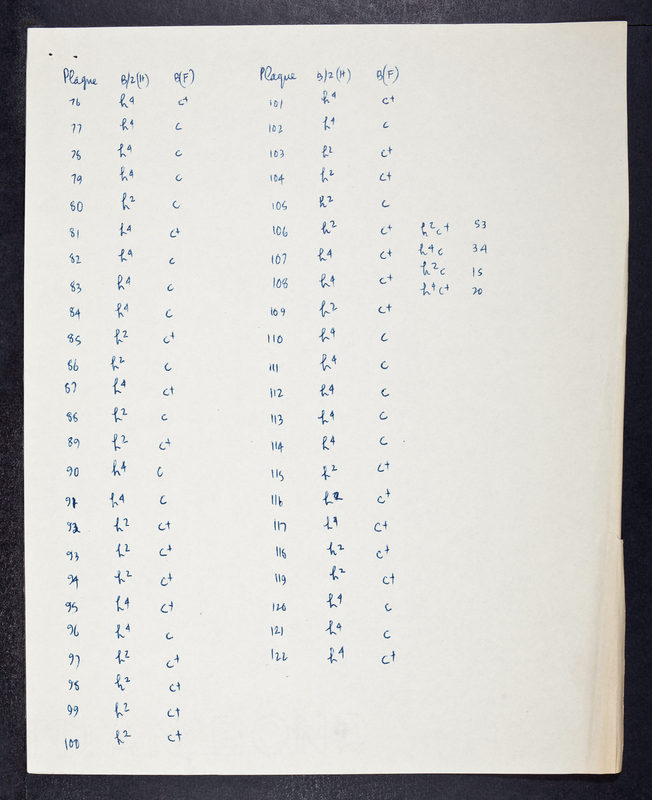 Plaque B/2(H) B(F)
76 h4 c+
77 h4 c
78 h4 c
79 h4 c
80 h2 c
81 h4 c+
82 h4 c
83 h4 c
84 h4 c
85 h2 c+
86 h2 c
87 h4 c+
88 h2 c
89 h2 c+
90 h4 c
91 h4 c
92 h2 c+
93 h2 c+
94 h2 c+
95 h4 c+
96 h4 c
97 h2 c+
98 h2 c+
99 h2 c+
100 h2 c+
Plaque B/2(H) B(F)
101 h4 c+
102 h4 c
103 h2 c+
104 h2 c+
105 h2 c
106 h2 c+
107 h4 c+
108 h4 c+
109 h2 c+
110 h4 c
111 h4 c
112 h4 c
113 h4 c
114 h4 c
115 h2 c+
116 h2 c+
117 h4 c+
118 h2 c+
119 h2 c+
120 h4 c
121 h4 c
122 h4 c+
h2c+ 53
h4c 34
h2c 15
h4c+ 20